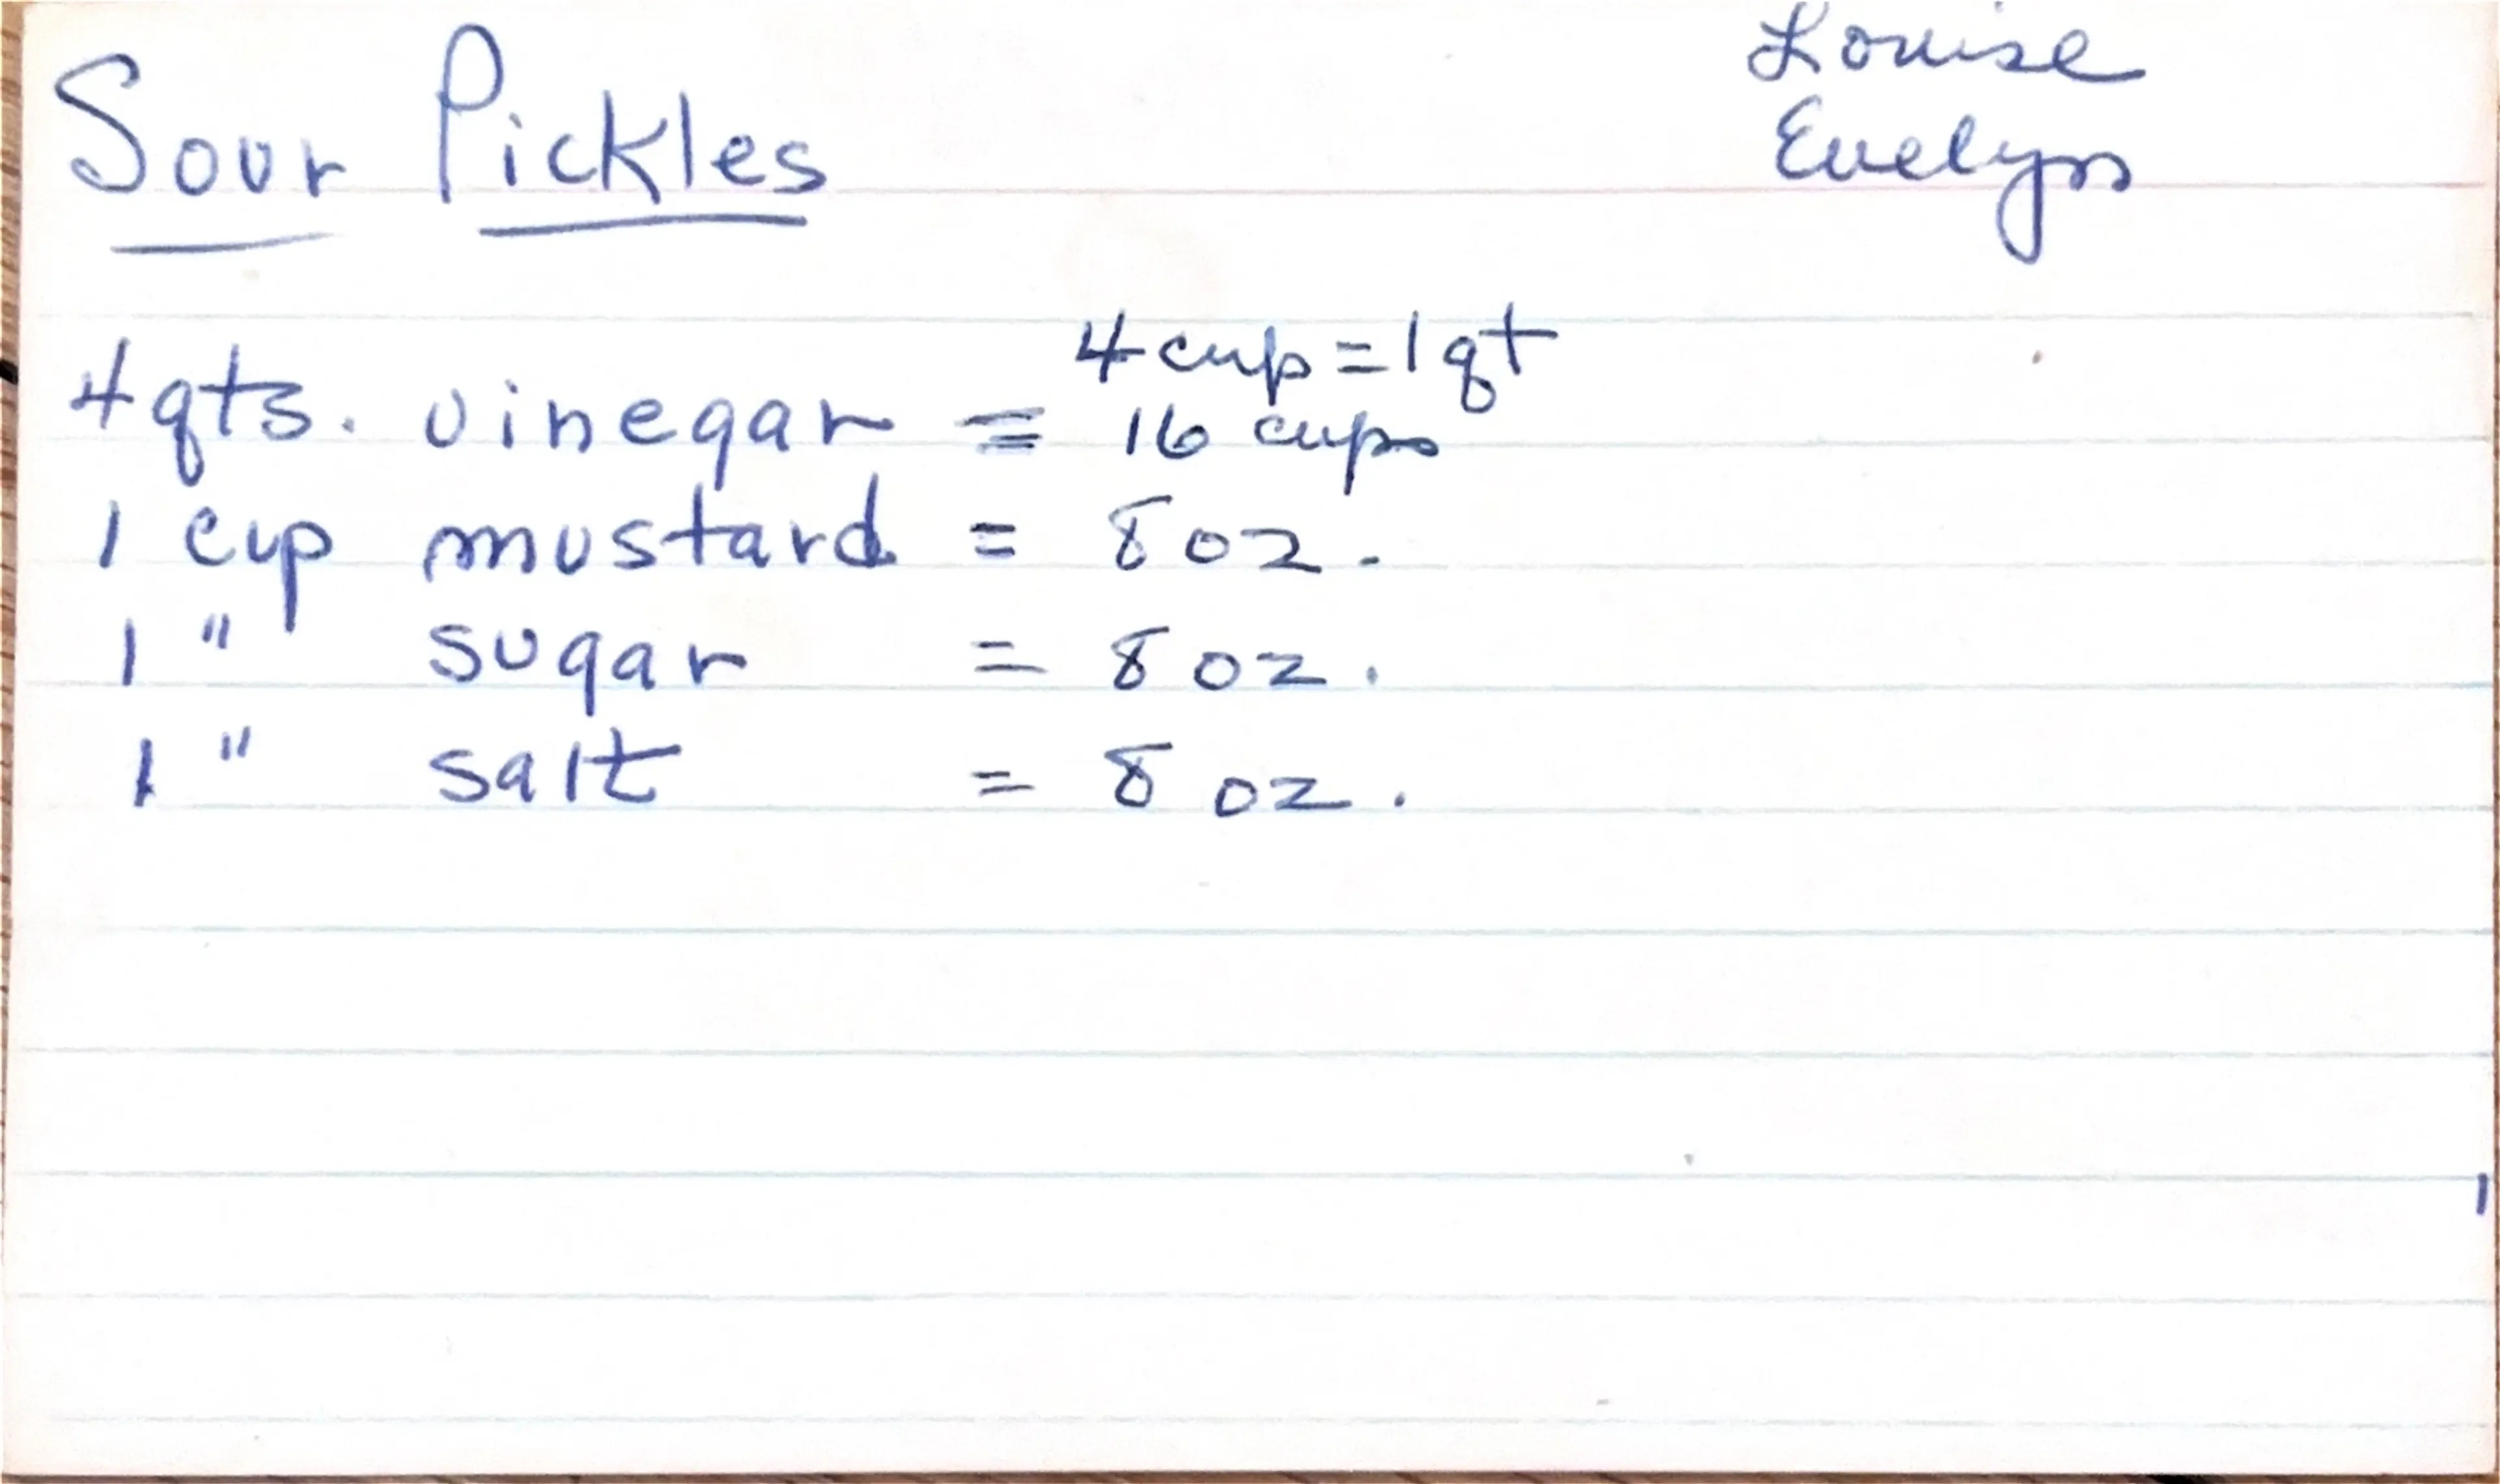 Sour Pickles
Louise
Evelyn
4 cup = 1 qt
4 qts. vinegar = 16 cups
1 cup mustard = 8 oz.
1 " sugar = 8 oz.
1 " salt = 8 oz.